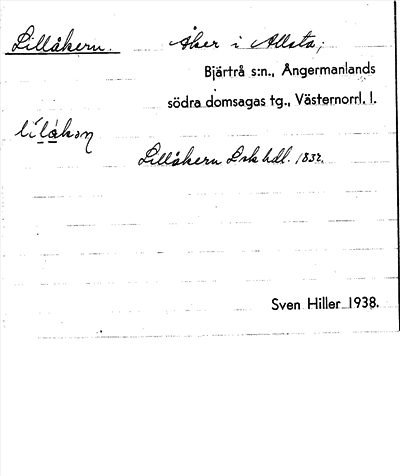 Lillåkern. Åker i Allsta;
Bjärtrå s:n., Ångermanlands
södra domsagas tg., Västernorrl. l.
Lillåkern Lsk hdl. 1832.
Sven Hiller 1938.